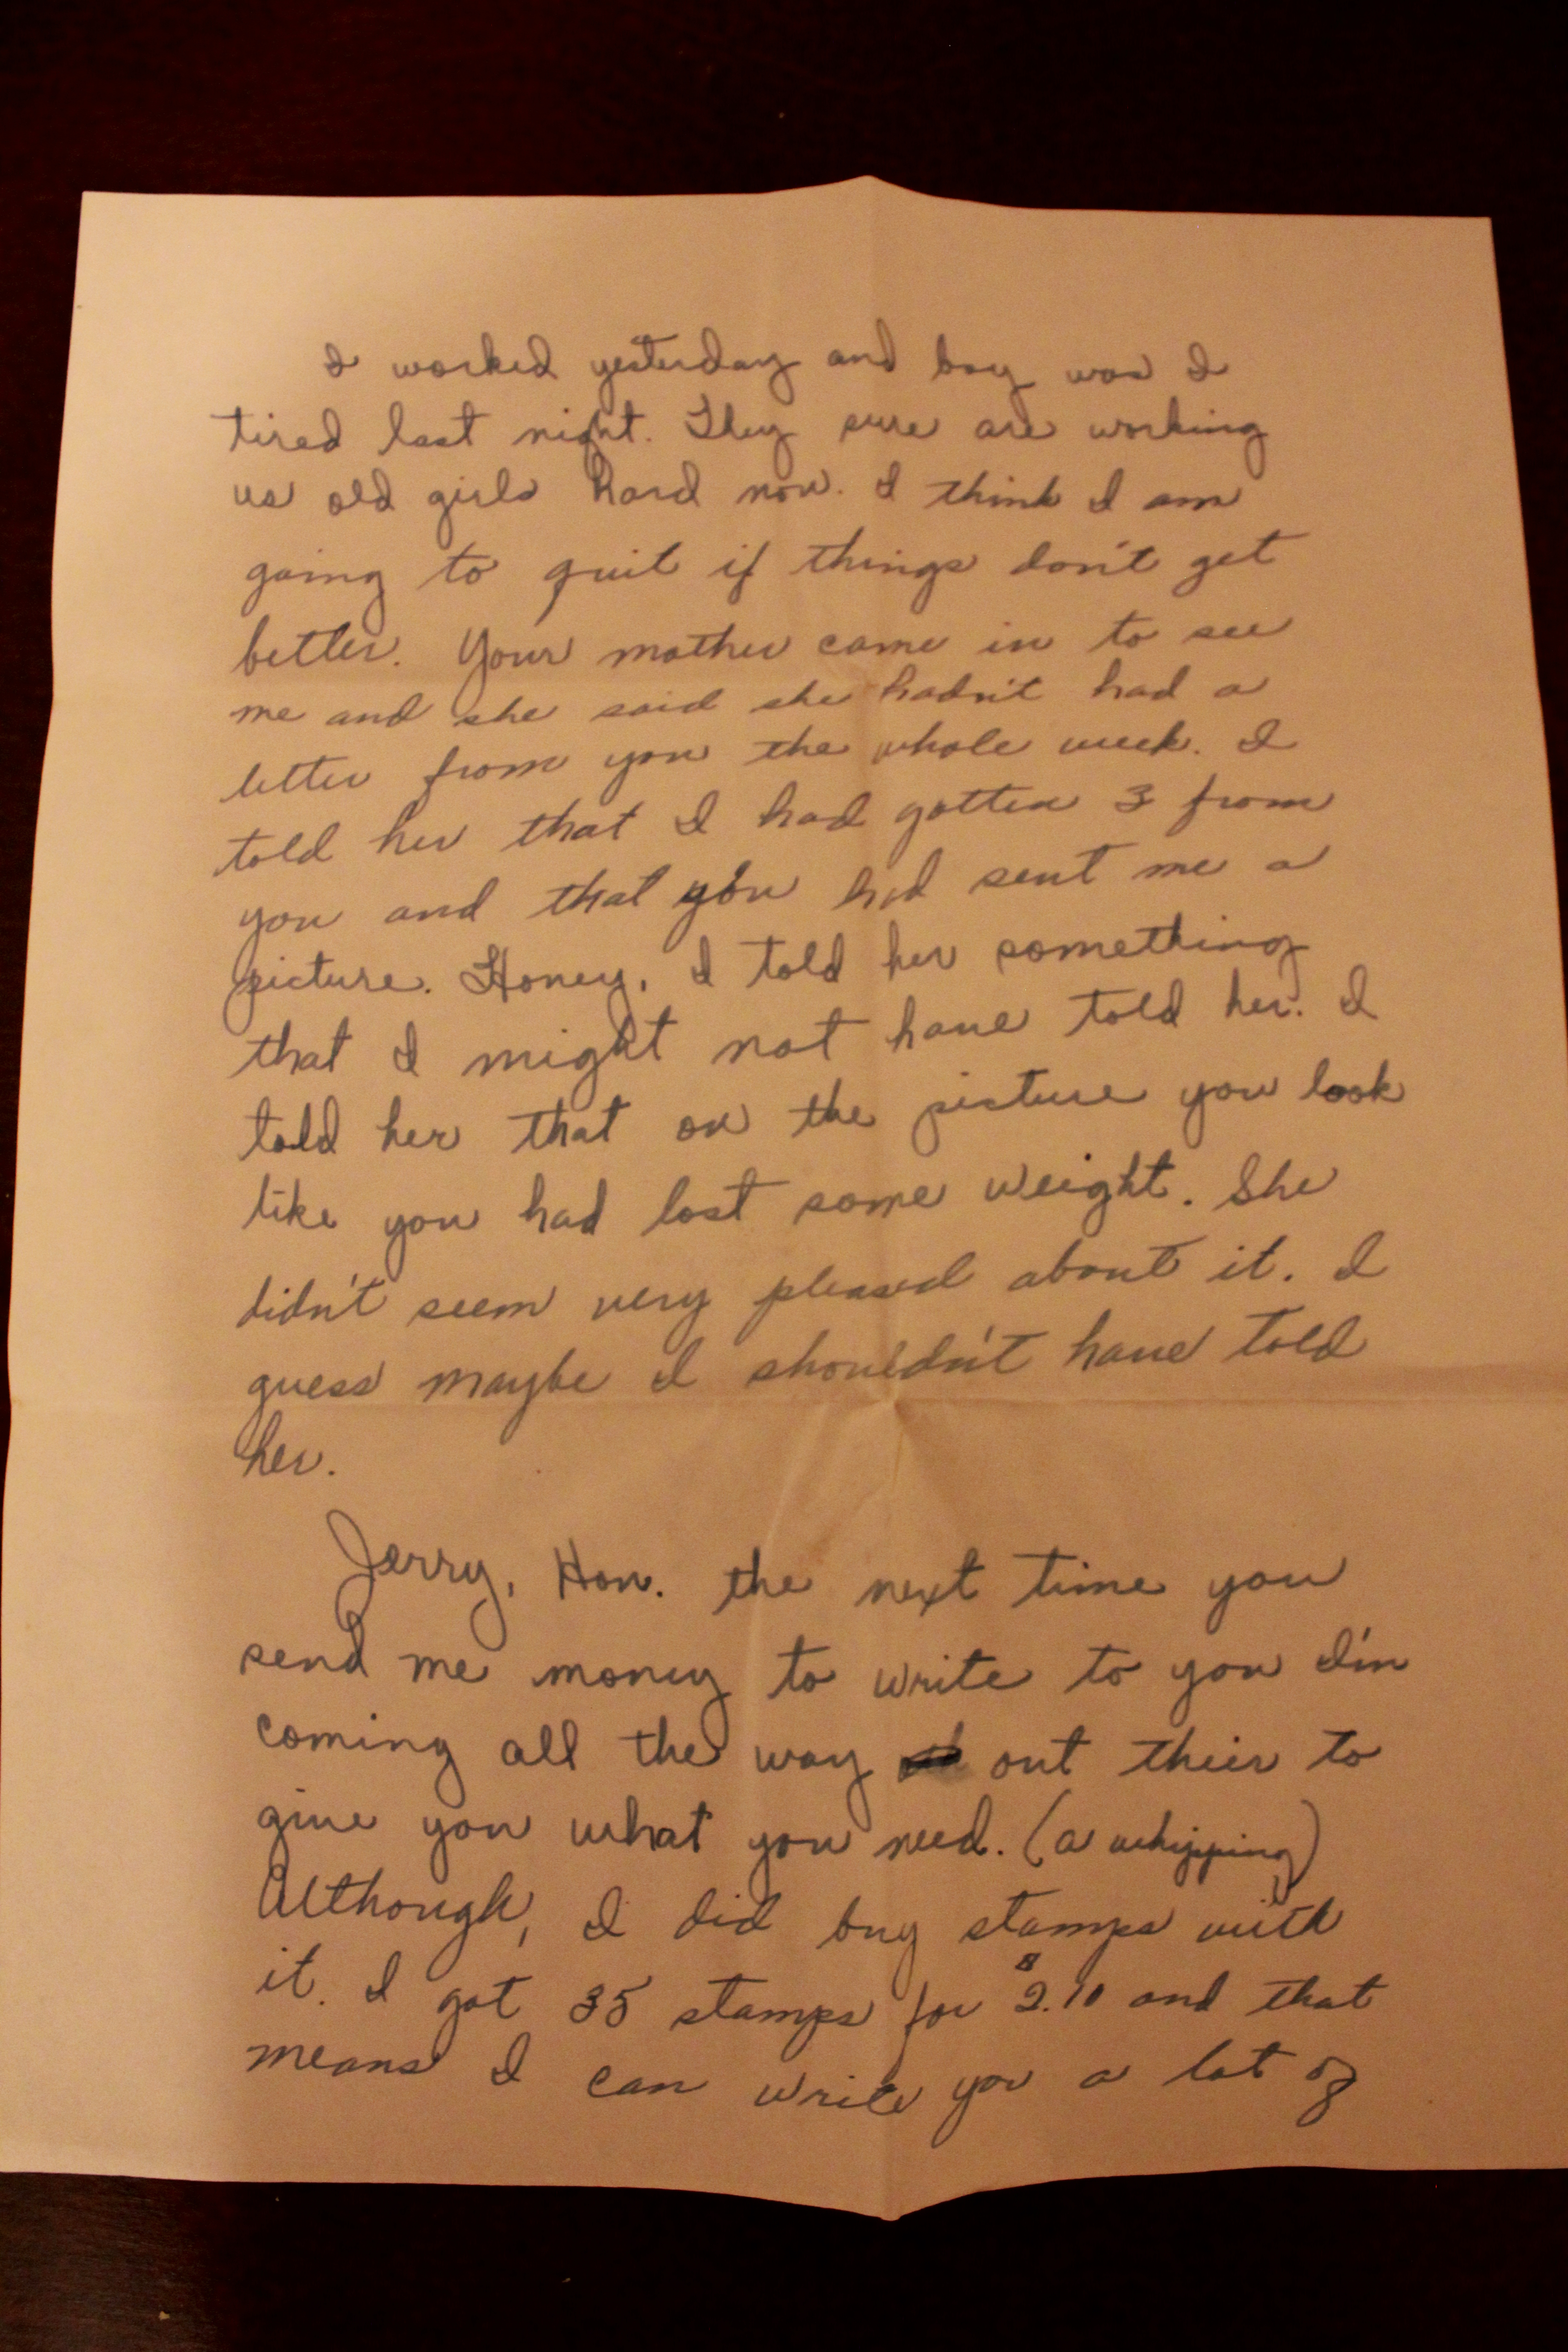 I worked yesterday and boy was I
tired last night. They sure are working
us old girls hard now. I think I am
going to quit if things don't get
better. Your mother came in to see
me and she said she hadn't had a
letter from you the whole week. I
told her that I had gotten 3 from
you and that you had sent me a
picture. Honey, I told her something
that I might not have told her. I
told her that on the picture you look
like you had lost some weight. She
didn't seem very pleased about it. I
guess maybe I shouldn't have told
her.
Jerry, Hon. the next time you
send me money to write to you I'm
coming all the way out their to
give you what you need. (a whipping)
Although, I did buy stamps with
it. I got 35 stamps for $2.10 and that
means I can write you a lot of